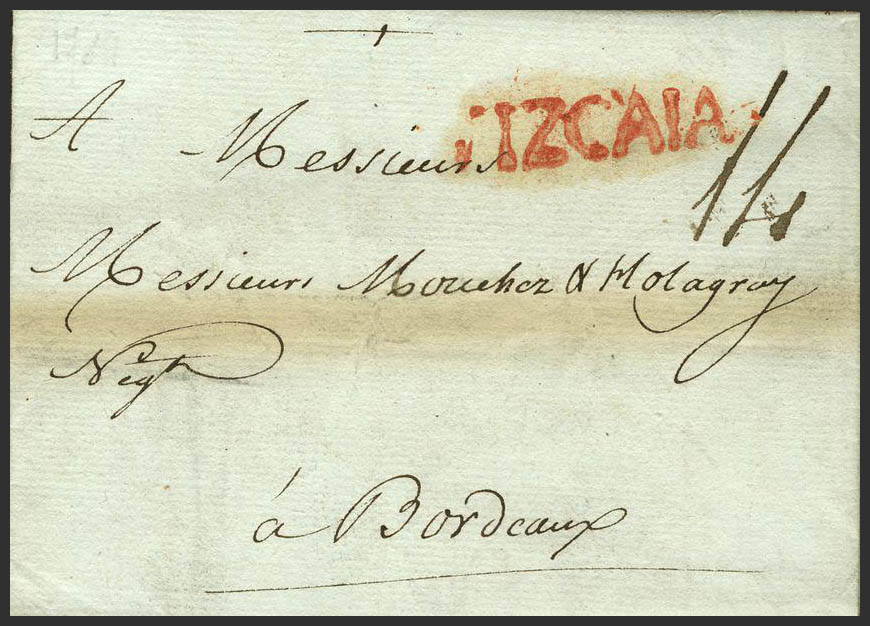 A
Messieurs
IZCAIA
14
Messieurs Mouchez & Holagray
Negts
á Bordeaux